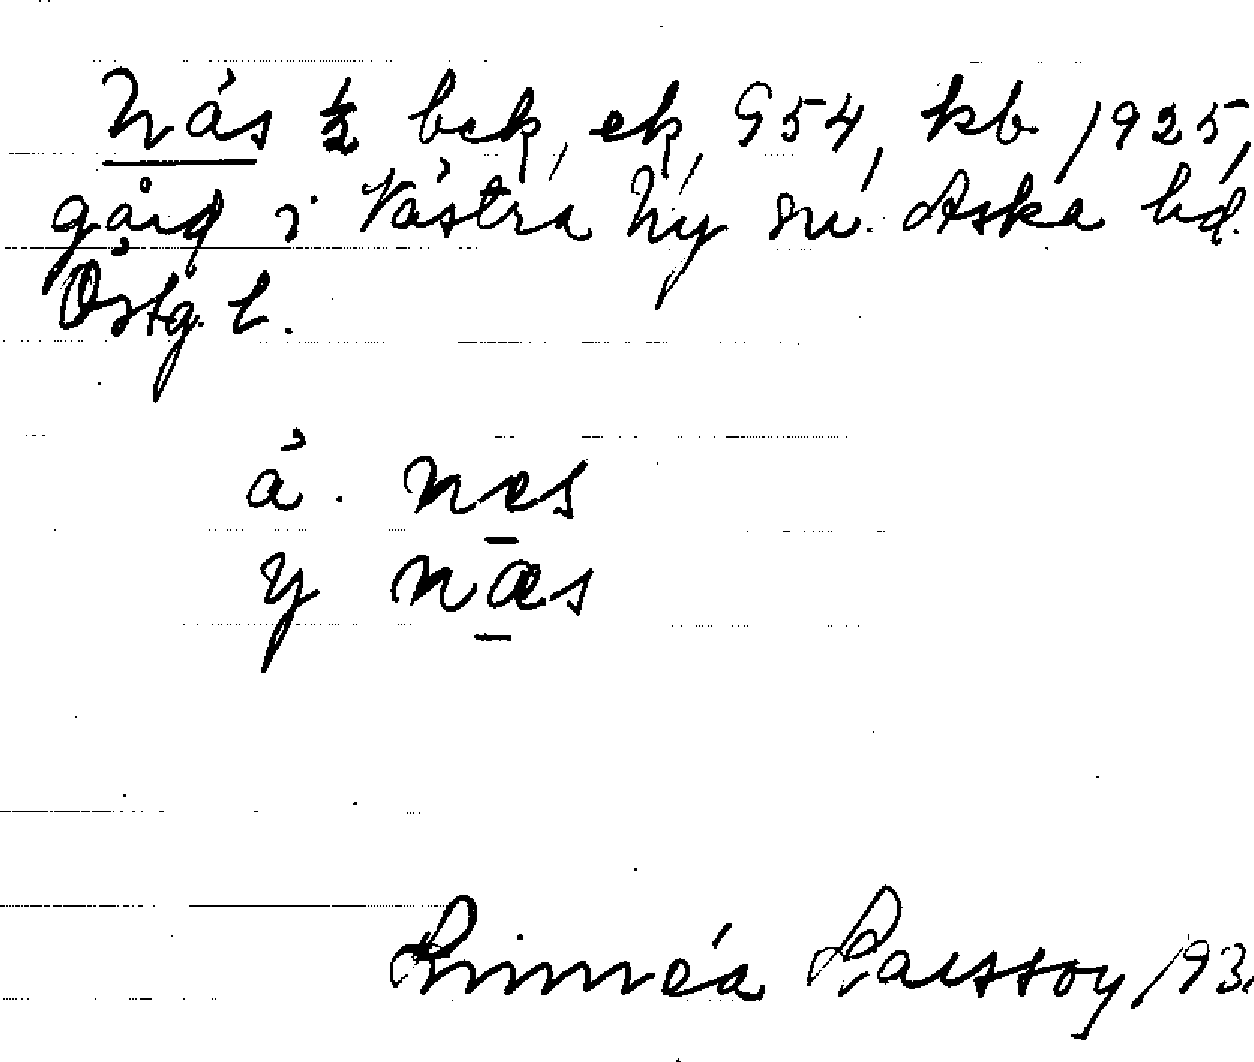 Näs ½ bek, ek, G54, kb 1925,
gård i Västra Ny sn. Aska hd.
Östg. l.
ä. nes
y næs
Linnéa Larsson 193